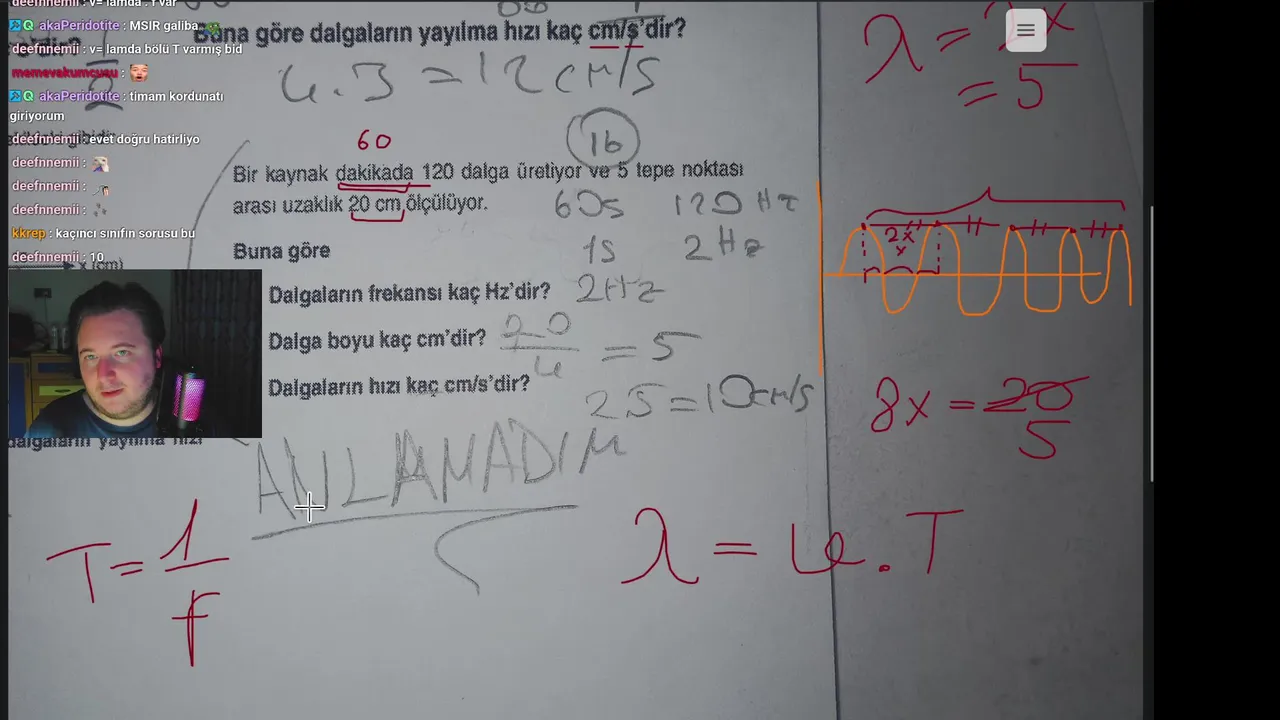 deefnnemii : v= lamda . f var
akaPeridotite : MSIR galiba
deefnnemii : v= lamda bölü T varmış bid
memevakumcusu :
akaPeridotite : timam kordunatı
giriyorum
deefnnemii : evet doğru hatirliyo
deefnnemii :
deefnnemii :
deefnnemii :
kkrep : kaçıncı sınıfın sorusu bu
deefnnemii : 10
x (cm)
dalgaların yayılma hızı
Buna göre dalgaların yayılma hızı kaç cm/s'dir?
4.3 = 12 cm/s
60
16
Bir kaynak dakikada 120 dalga üretiyor ve 5 tepe noktası
arası uzaklık 20 cm ölçülüyor.
60s 120 Hz
Buna göre
1s 2 Hz
Dalgaların frekansı kaç Hz'dir? 2Hz
Dalga boyu kaç cm'dir? 20/4 = 5
Dalgaların hızı kaç cm/s'dir?
2.5 = 10 cm/s
ANLAMADIM
T = 1/f
λ = v.T
λ = 2x
= 5
2x
x
8x = 20
5